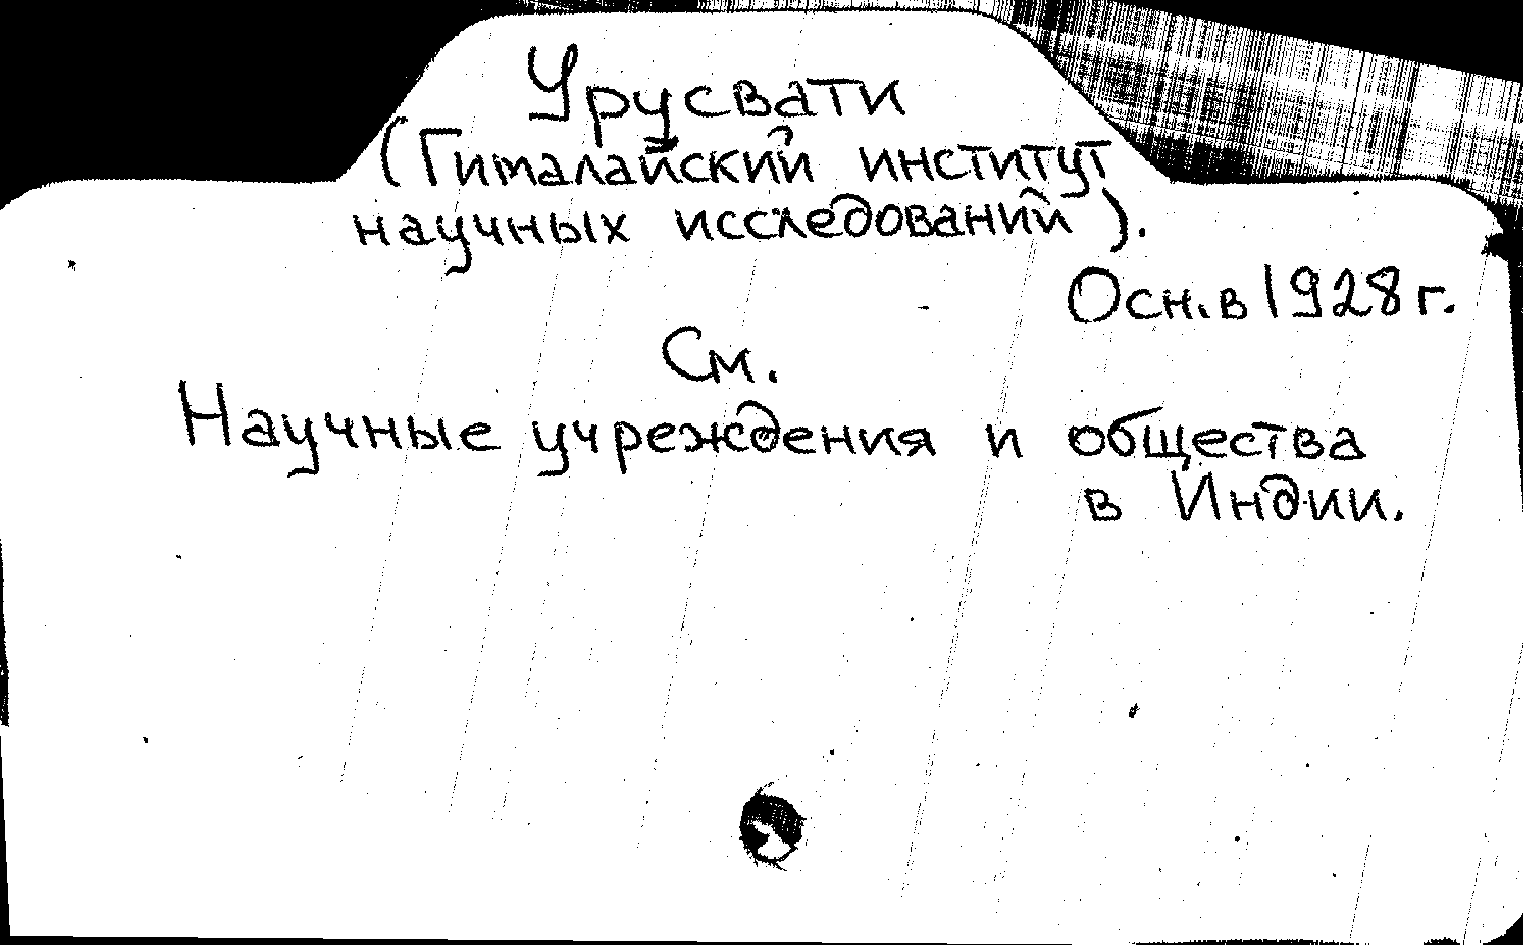 Урусвати
(Гималайский институт
научных исследований).
Осн. в 1928 г.
См.
Научные учреждения и общества
в Индии.